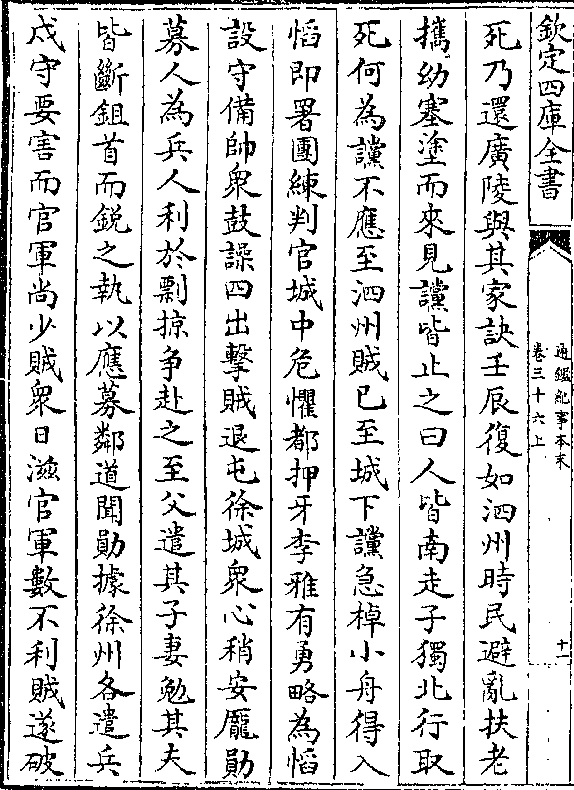 欽定四庫全書
通鑑紀事本末
卷三十六上
十一
死乃還廣陵與其家訣壬辰復如泗州時民避亂扶老
攜幼塞塗而來見讜皆止之曰人皆南走子獨北行取
死何為讜不應至泗州賊已至城下讜急棹小舟得入
慆即署團練判官城中危懼都押牙李雅有勇略為慆
設守備帥衆鼓譟四出擊賊退屯徐城衆心稍安龎勛
募人為兵人利於剽掠争赴之至父遣其子妻勉其夫
皆斷鉏首而鋭之執以應募鄰道聞勛據徐州各遣兵
戍守要害而官軍尚少賊衆日滋官軍數不利賊遂破